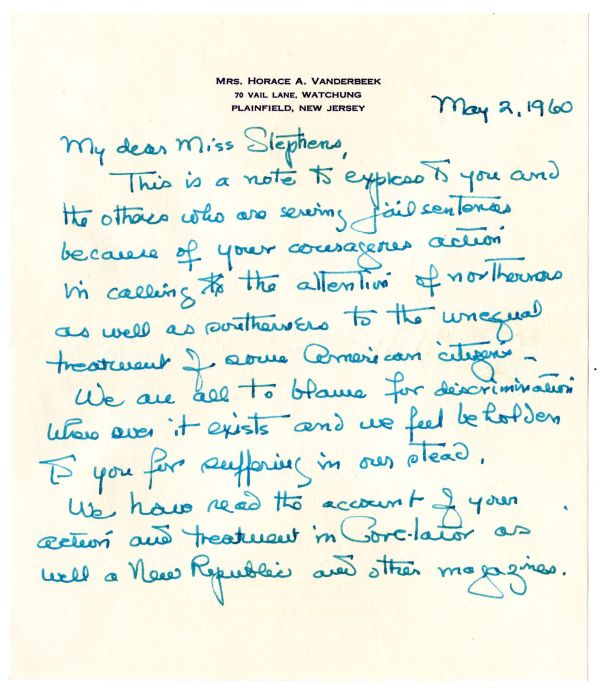 MRS. HORACE A. VANDERBEEK
70 VAIL LANE, WATCHUNG
PLAINFIELD, NEW JERSEY
May 2, 1960
My dear Miss Stephens,
This is a note to express to you and
the others who are serving jail sentences
because of your courageous action
in calling to the attention of northerners
as well as southerners to the unequal
treatment of some American citizens –
We are all to blame for discrimination
where ever it exists and we feel beholden
to you for suffering in our stead.
We have read the account of your
action and treatment in Core-lator as
well a New Republic and other magazines.